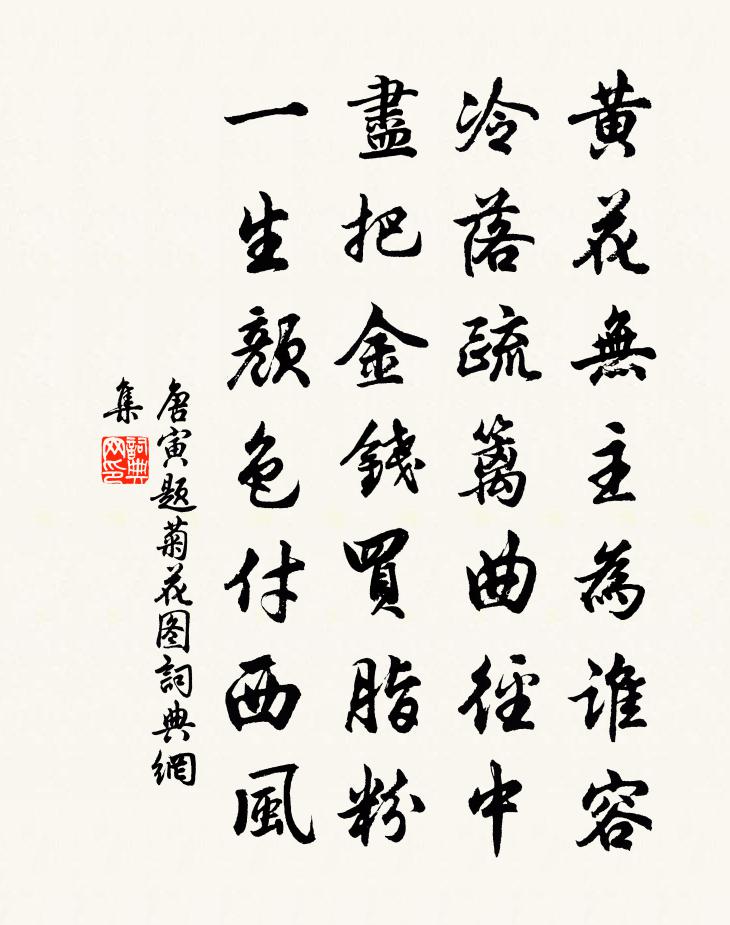 黃花無主為誰容
冷落疏籬曲徑中
盡把金錢買脂粉
一生顏色付西風
唐寅題菊花图詞典網
集
詞典網印